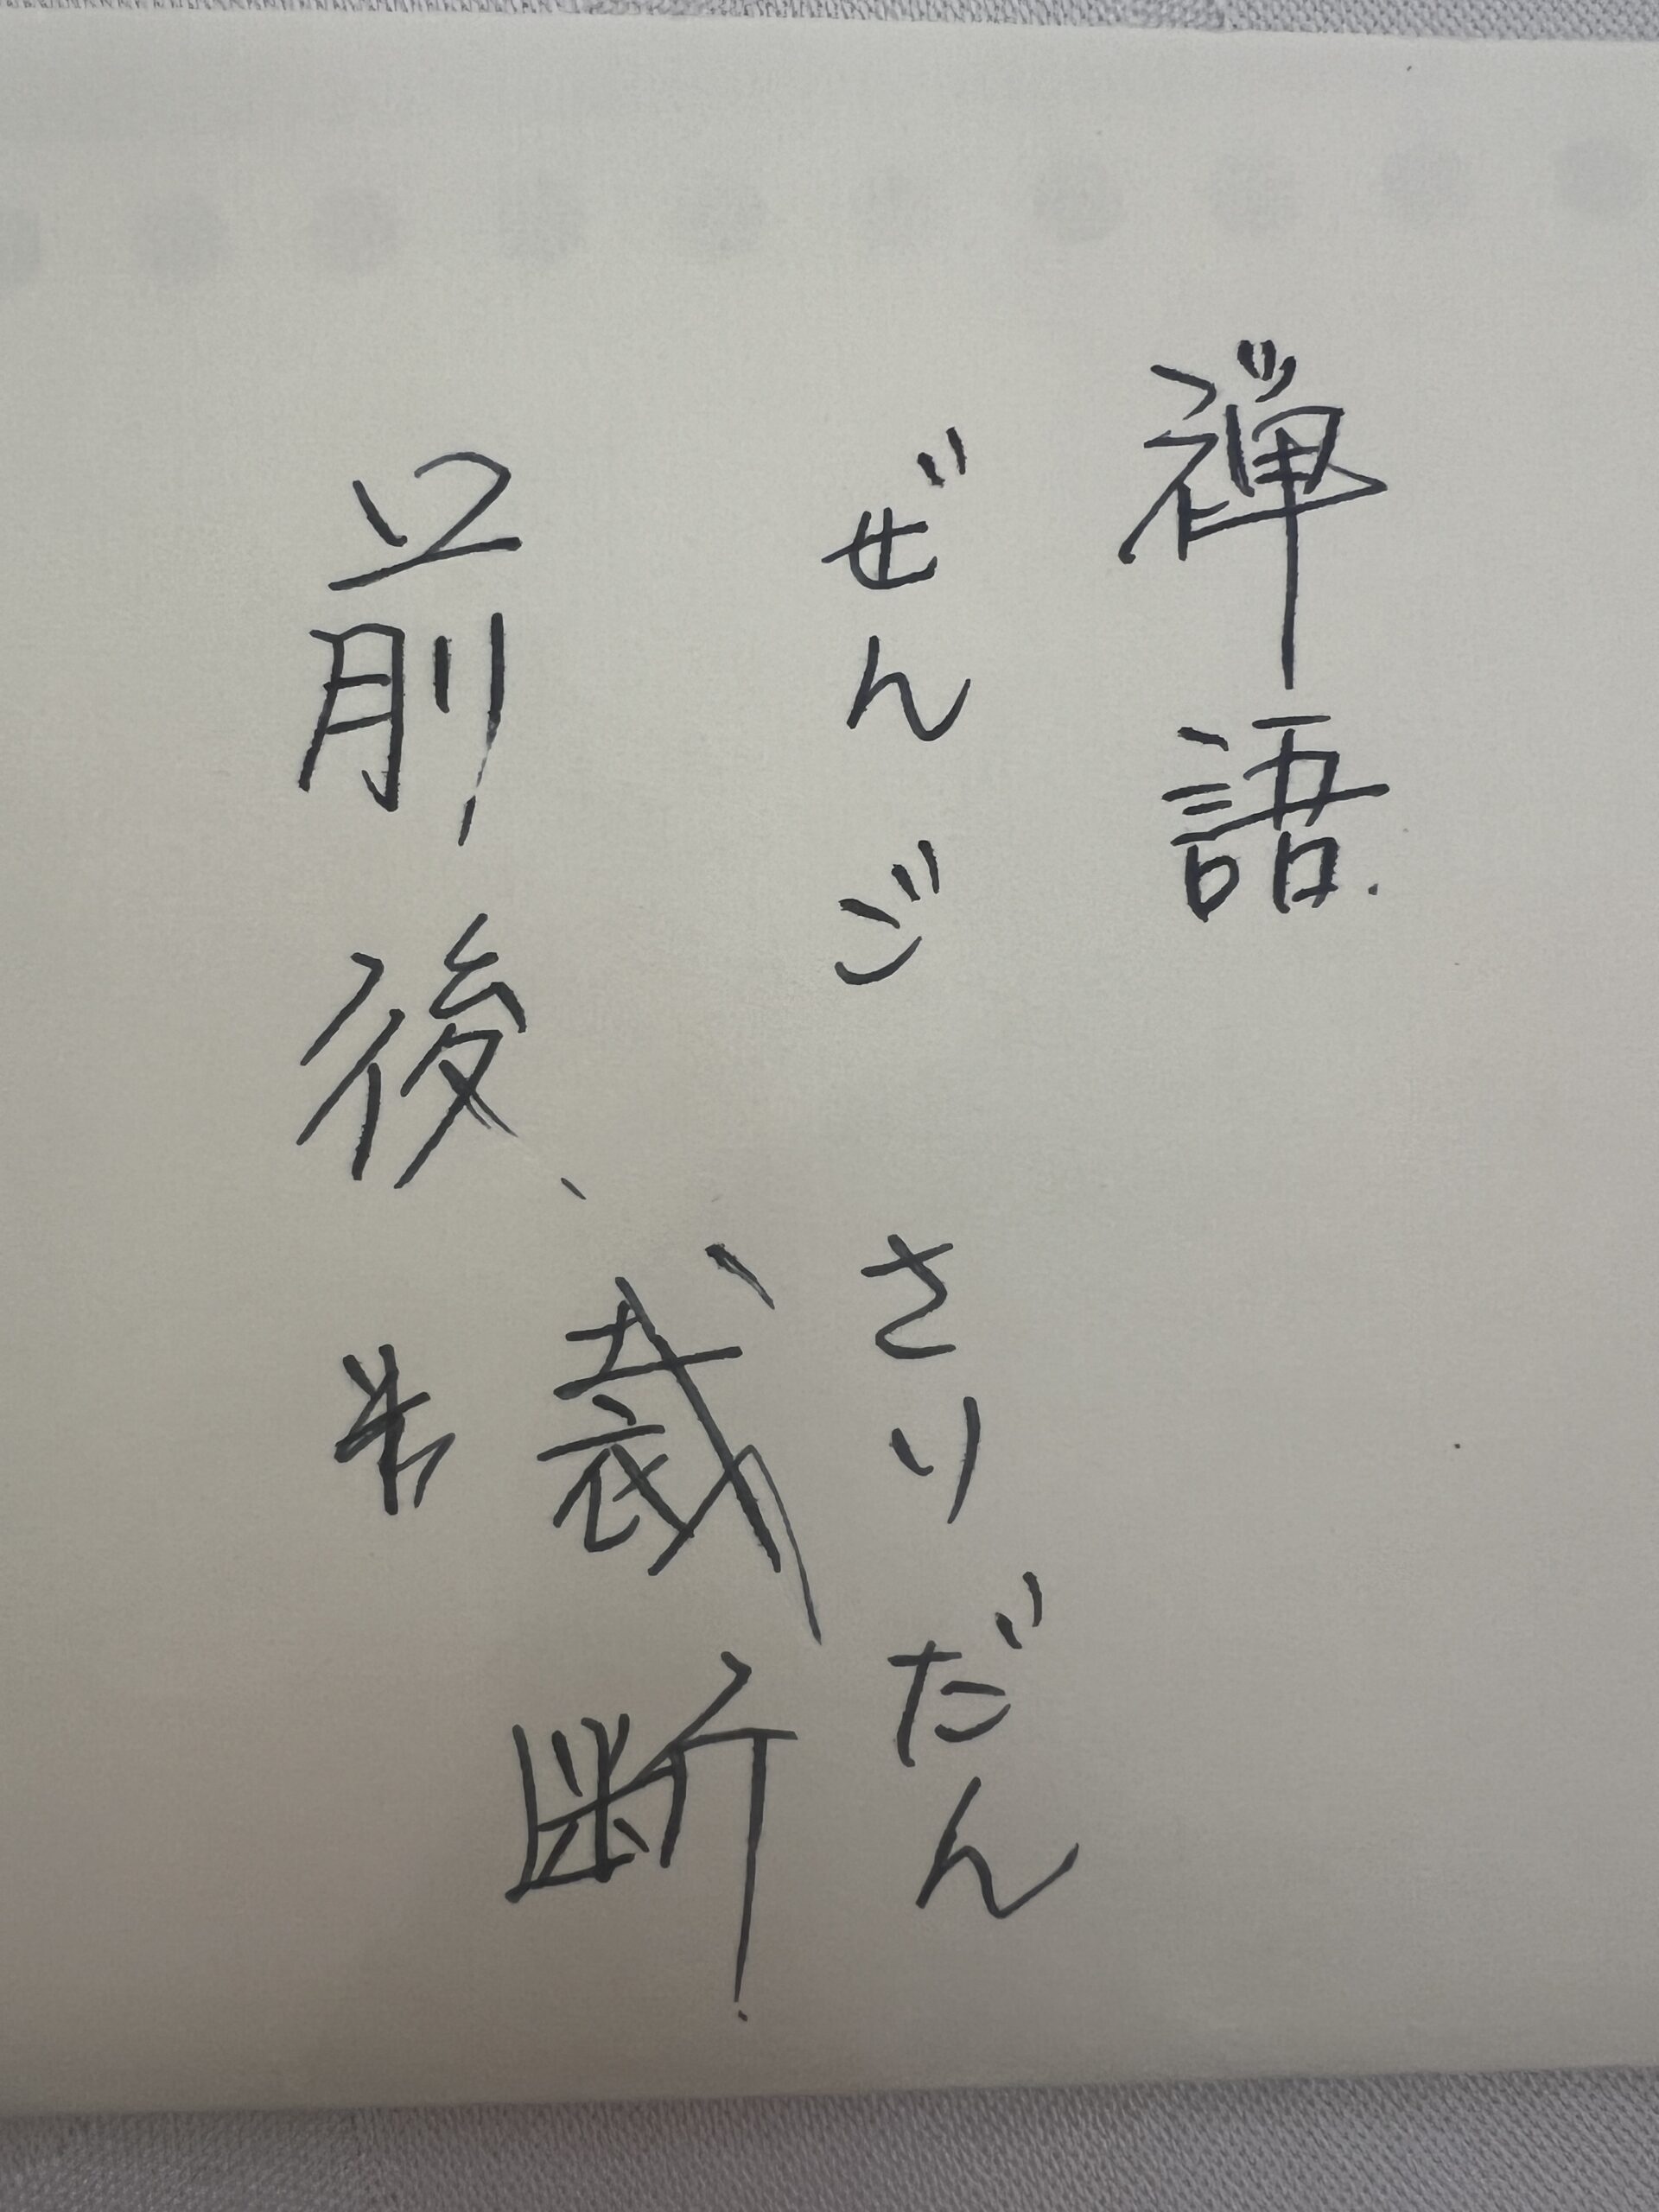 禅語
ぜんご さいだん
前後、裁断